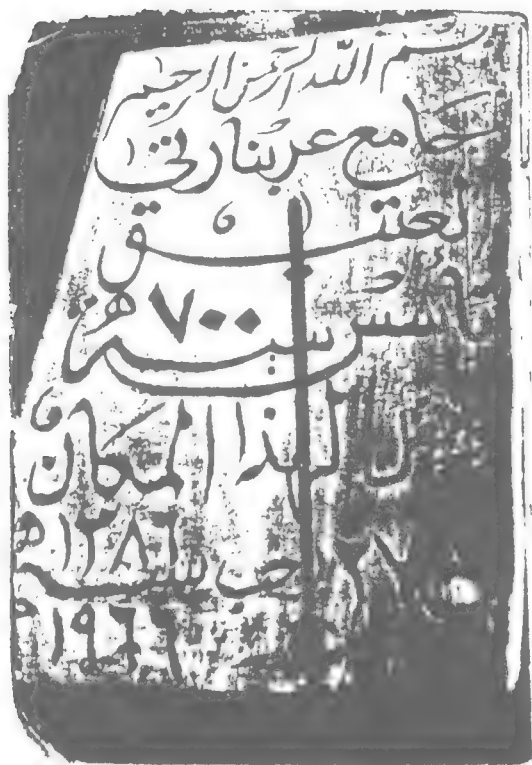 بسم الله الرحمن الرحيم
جامع عربنارتي
لعتيق
تأسس سنة ٧٠٠ هـ
لهذا المكان
سنة ١٣٨٦ هـ
١٩٦٦ م